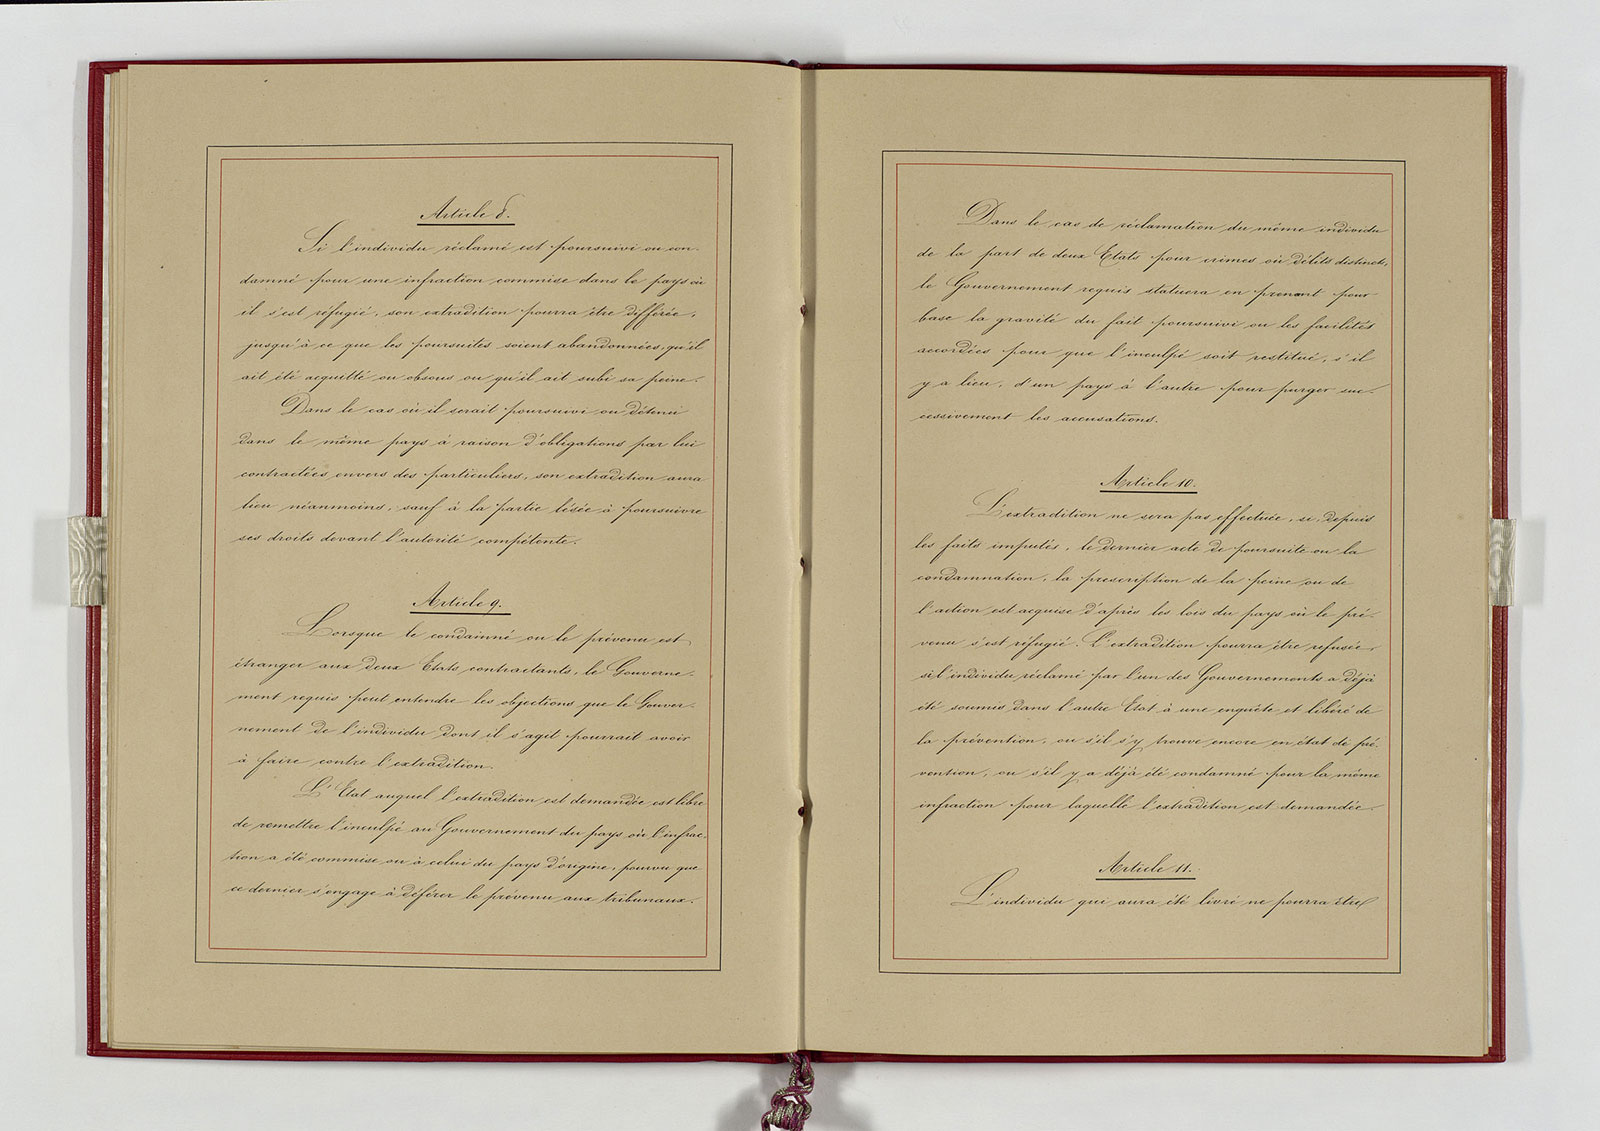 Article 8.
Si l'individu réclamé est poursuivi ou con-
damné pour une infraction commise dans le pays où
il s'est réfugié, son extradition pourra être différée,
jusqu'à ce que les poursuites soient abandonnées, qu'il
ait été acquitté ou absous ou qu'il ait subi sa peine.
Dans le cas où il serait poursuivi ou détenu
dans le même pays à raison d'obligations par lui
contractées envers des particuliers, son extradition aura
lieu néanmoins, sauf à la partie lésée à poursuivre
ses droits devant l'autorité compétente.
Article 9.
Lorsque le condamné ou le prévenu est
étranger aux deux Etats contractants, le Gouverne-
ment requis peut entendre les objections que le Gouver-
nement de l'individu dont il s'agit pourrait avoir
à faire contre l'extradition.
L'Etat auquel l'extradition est demandée est libre
de remettre l'inculpé au Gouvernement du pays où l'infrac-
tion a été commise ou à celui du pays d'origine, pourvu que
ce dernier s'engage à déférer le prévenu aux tribunaux.
Dans le cas de réclamation du même individu
de la part de deux Etats pour crimes ou délits distincts,
le Gouvernement requis statuera en prenant pour
base la gravité du fait poursuivi ou les facilités
accordées pour que l'inculpé soit restitué, s'il
y a lieu, d'un pays à l'autre pour purger suc-
cessivement les accusations.
Article 10.
L'extradition ne sera pas effectuée, si, depuis
les faits imputés, le dernier acte de poursuite ou la
condamnation, la prescription de la peine ou de
l'action est acquise d'après les lois du pays où le pré-
venu s'est réfugié. L'extradition pourra être refusée,
si l'individu réclamé par l'un des Gouvernements a déjà
été soumis dans l'autre Etat à une enquête et libéré de
la prévention, ou s'il s'y trouve encore en état de pré-
vention, ou s'il y a déjà été condamné pour la même
infraction pour laquelle l'extradition est demandée.
Article 11.
L'individu qui aura été livré ne pourra être